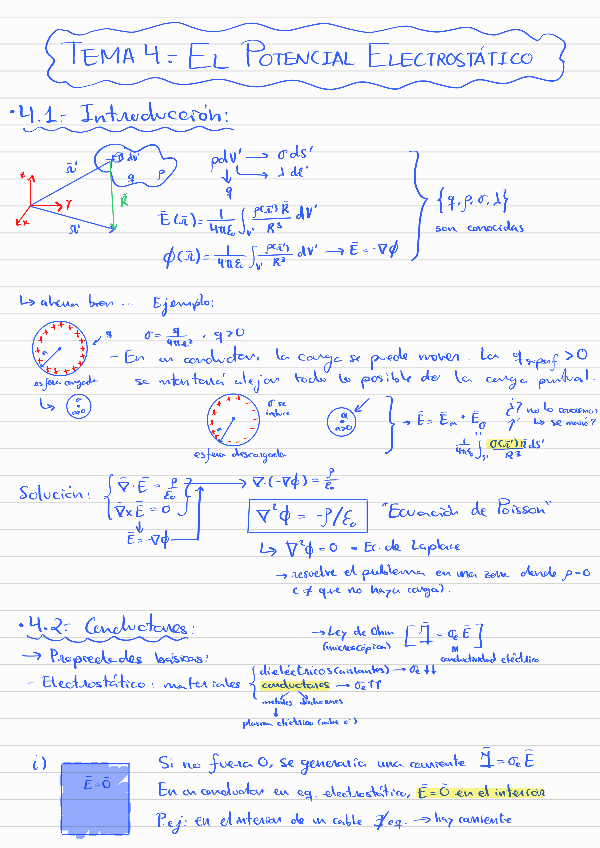 TEMA 4: EL POTENCIAL ELECTROSTÁTICO
• 4.1: Introducción:
r̄' dv' q ρ
R̄
z Y x
r̄
ρdv' → σ ds'
→ λ dl'
↓
q
Ē(r̄) = 1/4πε₀ ∫v' ρ(r̄') R̄ / R³ dv'
ϕ(r̄) = 1/4πε₀ ∫v' ρ(r̄') / R³ dv' → Ē = -∇ϕ
{q, ρ, σ, λ}
son conocidas
↳ ahora bien ... Ejemplo:
σ = q/4πa² , q>0
- En un conductor, la carga se puede mover. La q superf > 0
se intentará alejar todo lo posible de la carga puntual.
esfera cargada
σ se
induce
esfera descargada
→ Ē = Ēa + Ēσ
¿? no lo conocemos
↳ se movió?
1/4πε₀ ∫s' σ(r̄') R̄ ds' / R³
Solución: { ∇̄·Ē = ρ/ε₀ → ∇·(-∇ϕ) = ρ/ε₀
∇̄xĒ = 0
Ē = -∇ϕ
∇²ϕ = -ρ/ε₀ "Ecuación de Poisson"
↳ ∇²ϕ = 0 = Ec. de Laplace
→ resuelve el problema en una zona donde ρ=0
(≠ que no haya carga).
• 4.2: Conductores:
→ Ley de Ohm [J̄ = σe Ē]
(microscópica)
conductividad eléctrica
→ Propiedades básicas:
- Electrostático: materiales { dieléctricos (aislantes) → σe ↓↓
conductores → σe ↑↑
metales
plasma eléctrico (nube e⁻)
i) Ē = 0̄
Si no fuera 0, se generaría una corriente J̄ = σe Ē
En un conductor en eq. electrostático, Ē = 0̄ en el interior
P.ej: en el interior de un cable ∄ eq. → hay corriente